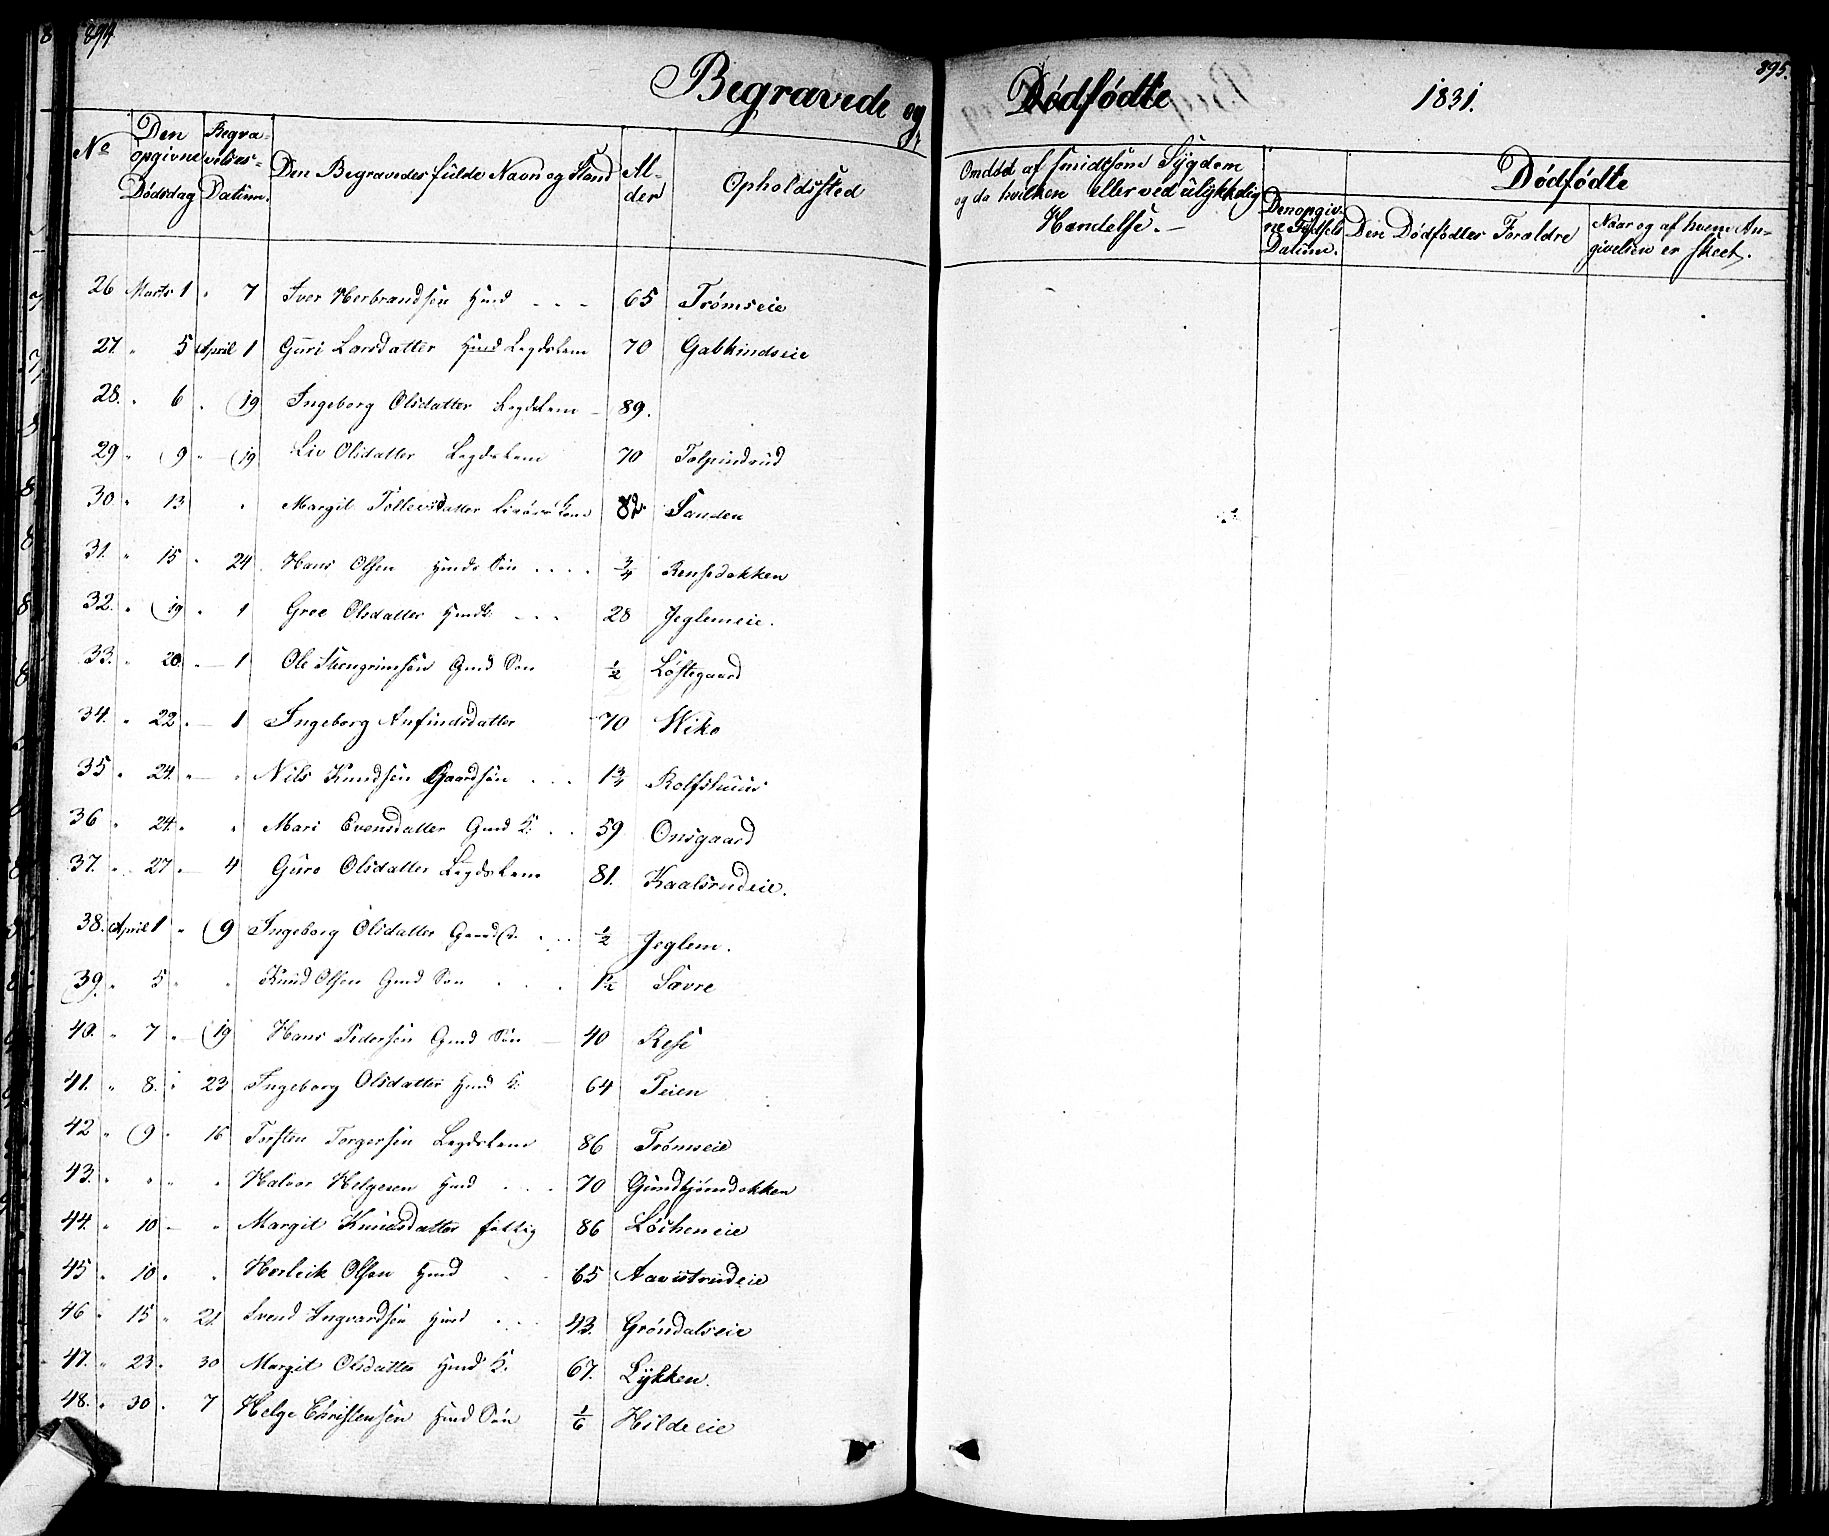 894
895.
Begravede og Dødfødte 1831.
No
Den opgivne Dødsdag
Begravelses-Datum.
Den Begravedes fulde Navn og Stand
Alder
Opholdssted
Omdød af smidtsom Sygdom
og da hvilken eller ved ulykkelig
Hændelse.
Dødfødte
Den opgivne Fødsels Datum.
Den Dødfødtes Forældre
Naar og af hvem Angivelsen er skeet.
26 Marts 1 " 7 Iver Herbrandsen Huusd - - - 65 Trømseie
27. " 5 April 1 Guri Larsdatter Legdslem 70 Gabkindseie
28. " 6 " 19 Ingeborg Olsdatter Legdslem - 89.
29 " 9 " 19 Liv Olsdatter Legdslem 70 Tolpindrud
30 " 13 " Margit Tollevsdatter 82 Sanden
31. " 15 " 24 Hans Olsen Huusds Søn .... 3/4 Rensedokken
32. " 19 " 1 Groe Olsdatter - - - 28 Jeglemeie.
33. " 20 " 1 Ole Stengrimsen Gmd Søn 1/2 Løstegaard
34. " 22 " 1 Ingeborg Anfindsdatter 70 Wiko
35 " 24 " " Nils Knudsen Gaardsøn . . . 1 3/4 Rolfshuus
36 " 24 " " Mari Evensdatter Gmd K. . . 59 Onsgaard
37. " 27 " 4 Guro Olsdatter Legdslem 81. Kaalsrudeie.
38. April 1 " 9 Ingeborg Olsdatter . . . 1/2 Jeglem.
39. " 5 " " Knud Olsen Gmd Søn . . . 1 1/2 Sævre
40. " 7 " 19 Hans Pedersen Gmd Søn - 40 Rese
41. " 8. " 23 Ingeborg Olsdatter Hmd K. 64 Teien
42 " 9 " 16 Torsten Torgersen Legdslem 86 Trømseie
43. " " " " Halvor Helgesen Hmd . . . 70 Gundbjørndokken
44. " 10 - " Margit Knudsdatter fattig 86 Løstheneie
45 " 10 " " Herleik Olsen Hmd . . 65 Aavestrudeie
46 " 15 " 21 Svend Ingvardsen Hmd . . . 43. Grøndalseie
47. " 23 " 30 Margit Olsdatter Hmd K. 67. Lykken.
48. " 30 " 7 Helge Christensen Hmd Søn 1/6 Hildeeie